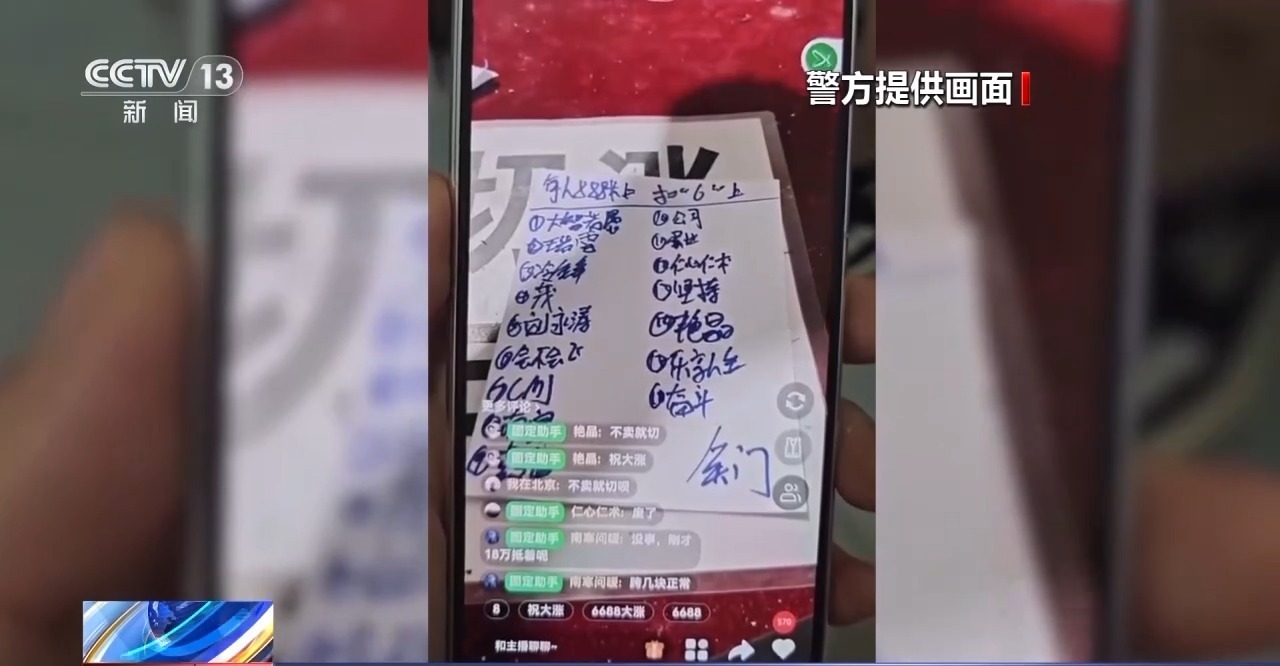 CCTV 13
新闻
警方提供画面
每人888米上 扣“6”上
①大智若愚
③冷锋
④茂
⑥会不会飞
CMJ
公司
仁心仁术
坚持
艳晶
乐享人生
奋斗
关门
更多评论
固定助手 艳晶：不卖就切
固定助手 艳晶：祝大涨
我在北京：不卖就切呗
固定助手 仁心仁术：废了
固定助手 南寒问暖：没事，刚才
18万抵着呢
固定助手 南寒问暖：跨几块正常
8 祝大涨 6688大涨 6688
570
和主播聊聊~